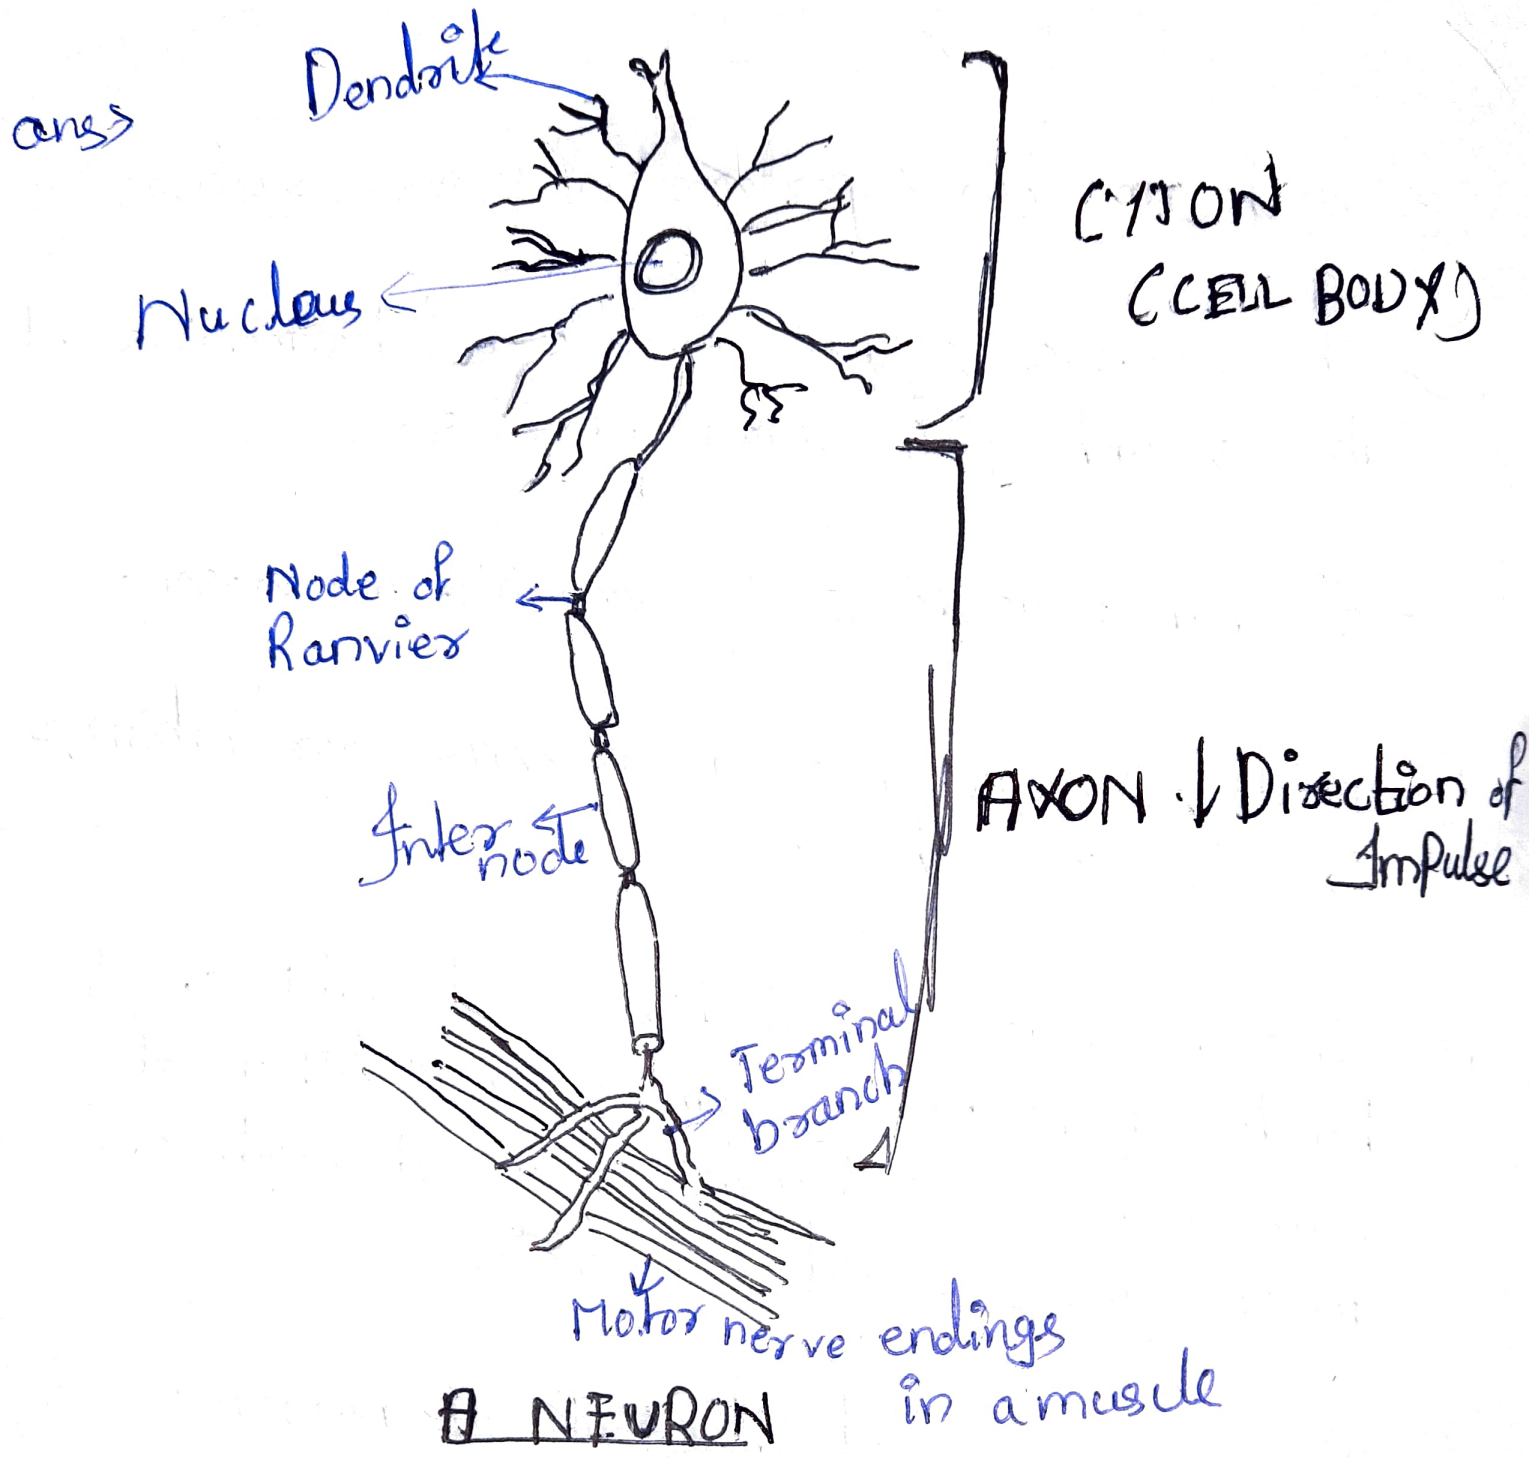 ans>
Dendrite
Nucleus
CYTON
(CELL BODY)
Node of
Ranvier
Inter
node
AXON ↓ Direction of
Impulse
Terminal
branch
Motor nerve endings
in a muscle
A NEURON